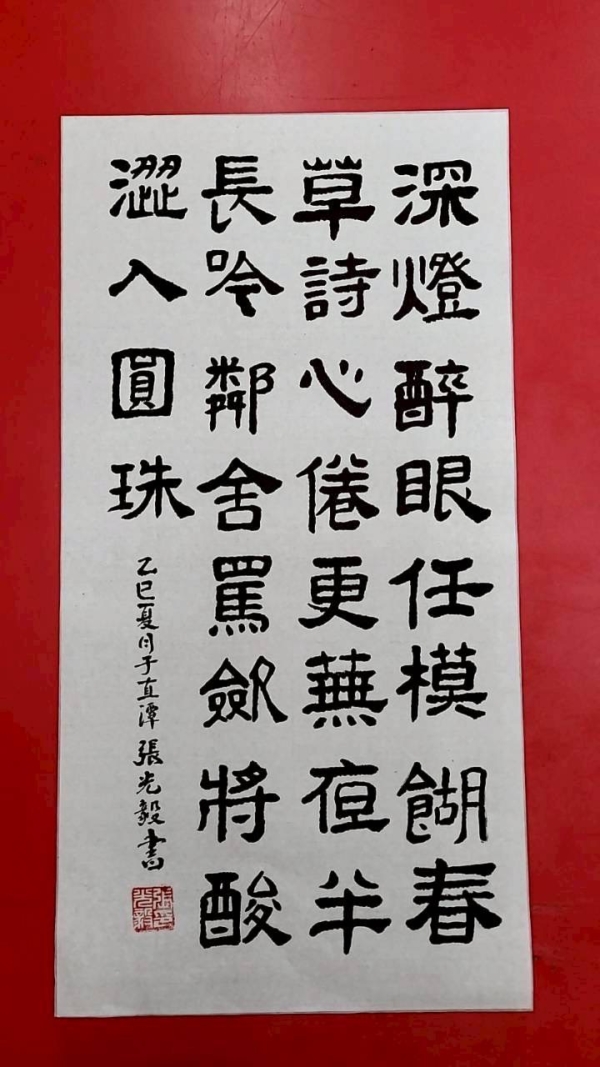 深燈醉眼任模餬春
草詩心倦更蕪亱半
長吟鄰舍罵歛將酸
澀入圓珠
乙巳夏月于直潭張光毅書
張印光毅